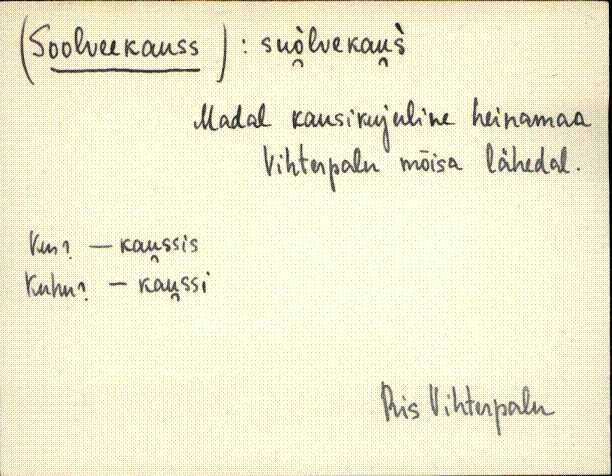 (Soolveekauss) : suò̯lvekau̯s̀
Madal kausikujuline heinamaa
Vihterpalu mõisa lähedal.
Kus? – kau̯ssis
Kuhu? – kau̯ssi
Ris Vihterpalu